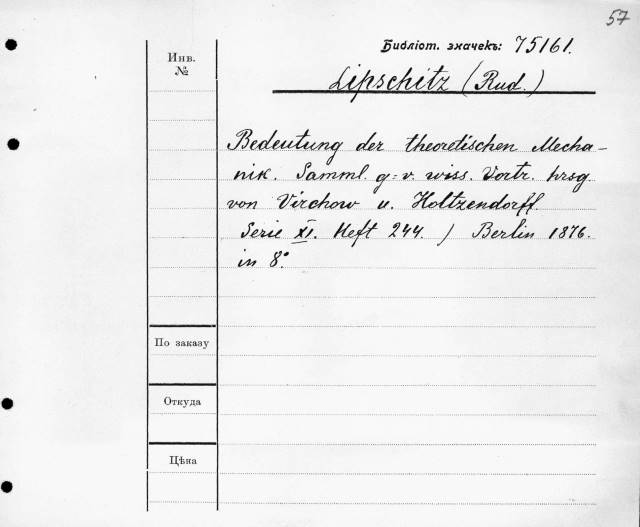 57
Библіот. значекъ: 75161.
Инв.
№
Lipschitz (Rud.)
Bedeutung der theoretischen Mecha-
nik. Samml. g=v. wiss. Vortr. hrsg
von Virchow u. Holtzendorff.
Serie XI. Heft 244.) Berlin 1876.
in 8º.
По заказу
Откуда
Цѣна